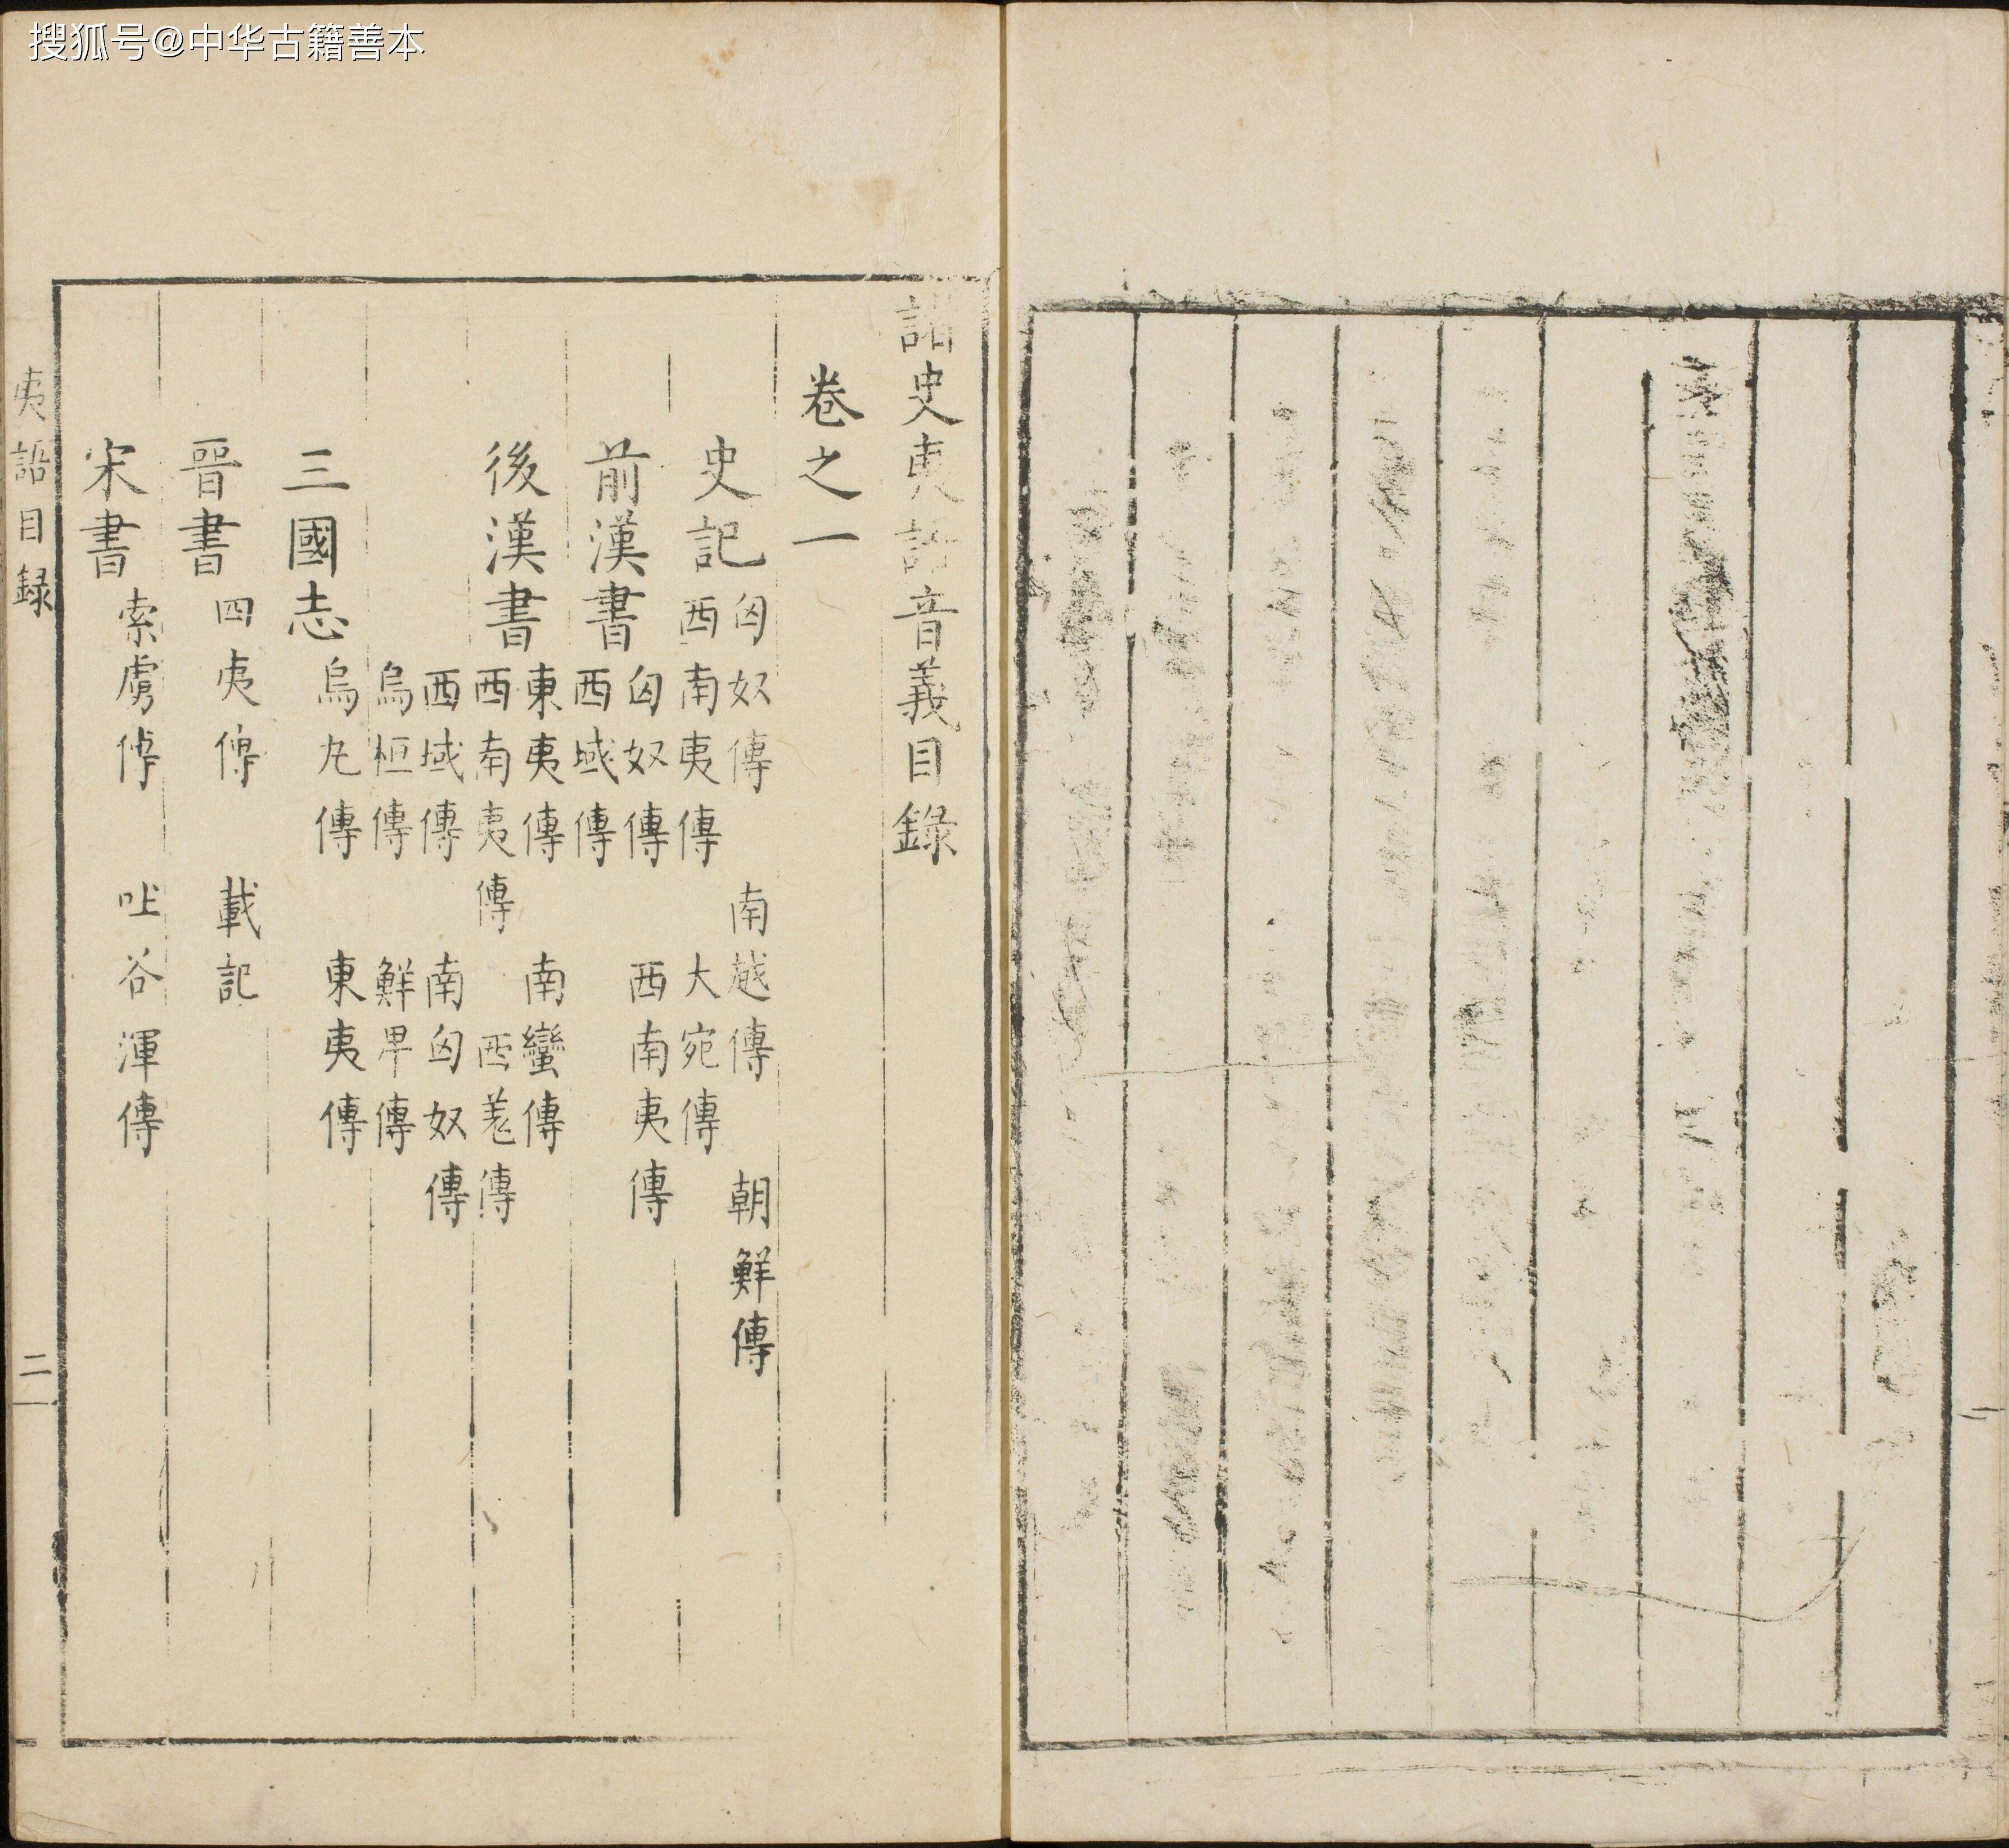 搜狐号@中华古籍善本
諸史夷語音義目錄
卷之一
史記 匈奴傳 南越傳 朝鮮傳
西南夷傳 大宛傳
前漢書 匈奴傳 西南夷傳
西域傳
後漢書 東夷傳 南蠻傳
西南夷傳 西羗傳
西域傳 南匈奴傳
烏桓傳 鮮卑傳
三國志 烏丸傳 東夷傳
晉書 四夷傳 載記
宋書 索虜傳 吐谷渾傳
夷語目録 二